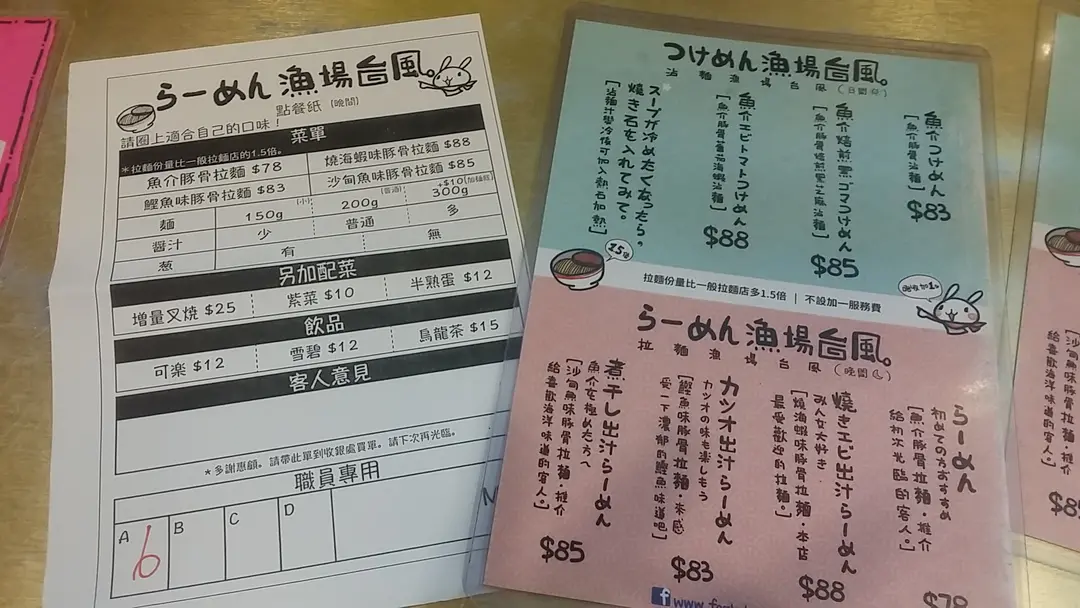 らーめん 漁場台風。
點餐紙 (晚間)
請圈上適合自己的口味！
菜單
*拉麵份量比一般拉麵店的1.5倍。
魚介豚骨拉麵 $78
燒海蝦味豚骨拉麵 $88
鰹魚味豚骨拉麵 $83
沙甸魚味豚骨拉麵 $85
麵
150g (小)
200g (普通)
+$10(加麵錢)
300g
醬汁
少
普通
多
葱
有
無
另加配菜
增量叉燒 $25
紫菜 $10
半熟蛋 $12
飲品
可樂 $12
雪碧 $12
烏龍茶 $15
客人意見
*多謝惠顧。請帶此單到收銀處買單。請下次再光臨。
職員專用
A 6
B
C
D
つけめん漁場台風。
沾麵漁場台風
魚介つけめん
[魚介豚骨沾麵]
$83
魚介焙煎黒ゴマつけめん
[魚介豚骨焙煎黑芝麻沾麵]
$85
魚介エビトマトつけめん
[魚介豚骨蕃茄海蝦沾麵]
$88
スープが冷めたくなったら。
焼き石を入れてみて。
[沾麵汁變冷後可加入熱石加熱]
1.5倍
拉麵份量比一般拉麵店多1.5倍 | 不設加一服務費
らーめん漁場台風。
拉麵漁場台風
(晚間)
らーめん
初めての方おすすめ
[魚介豚骨拉麵・推介
給初次光臨的客人。]
$78
焼きエビ出汁らーめん
みんな大好き
[燒海蝦味豚骨拉麵・本店
最受歡迎的拉麵。]
$88
カツオ出汁らーめん
カツオの味も楽しもう
[鰹魚味豚骨拉麵・來感
受一下濃郁的鰹魚味道吧]
$83
煮干し出汁らーめん
魚介を極めた方へ
[沙甸魚味豚骨拉麵・推介
給喜歡海洋味道的客人。]
$85
f www.